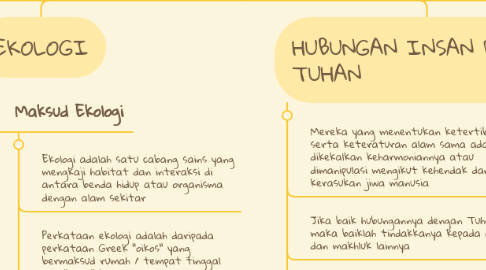 EKOLOGI
Maksud Ekologi
Ekologi adalah satu cabang sains yang
mengkaji habitat dan interaksi di
antara benda hidup atau organisma
dengan alam sekitar
Perkataan ekologi adalah daripada
perkataan Greek "oikos" yang
bermaksud rumah / tempat tinggal
HUBUNGAN INSAN
TUHAN
Mereka yang menentukan
serta keteraturan alam sama
dikekalkan keharmoniannya atau
dimanipulasi mengikut kehendak
kerasukan jiwa manusia
Jika baik hubungannya dengan
maka baiklah tindakkanya kepada
dan makhluk lainnya